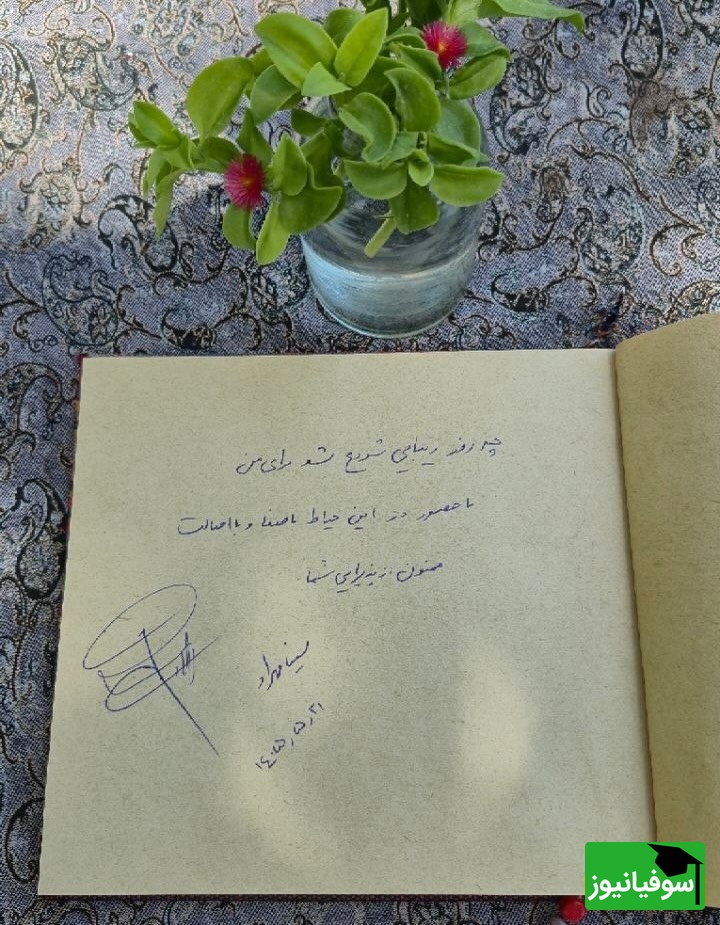 چه روز زیبایی شروع شد برای من
با حضور در این حیاط باصفا و بااصالت
ممنون از پذیرایی شما
سینا مهراد
۱۴۰۵/۵/۲۱
سوفیانیوز